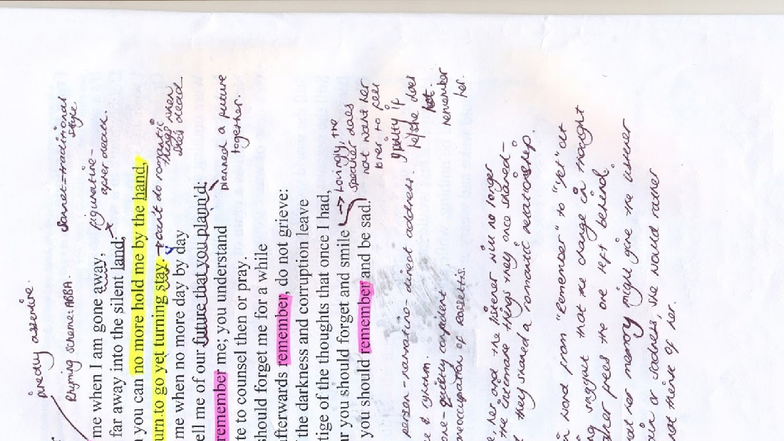 me when I am gone away,
far away into the silent land;
you can no more hold me by the hand,
turn to go yet turning stay.
me when no more day by day
tell me of our future that you plann'd:
remember me; you understand
te to counsel then or pray.
should forget me for a while
afterwards remember, do not grieve:
the darkness and corruption leave
tige of the thoughts that once I had,
you should forget and smile
you should remember and be sad.
Rhyming scheme: ABBA
Sonnet - traditional
style.
figurative -
after death.
can't do romantic
things when
she's dead.
planned a future
together.
lovingly, the
speaker does
not want her
lover to feel
guilty if
he/she does
not
remember
her.
person - narrative - direct address.
her and the listener will no longer
the intimate things they once shared -
they shared a romantic relationship.
word from "remember" to "yet" at
suggest that the change in thought
frees the one left behind.
her memory might give the listener
or sadness she would rather
not think of her.